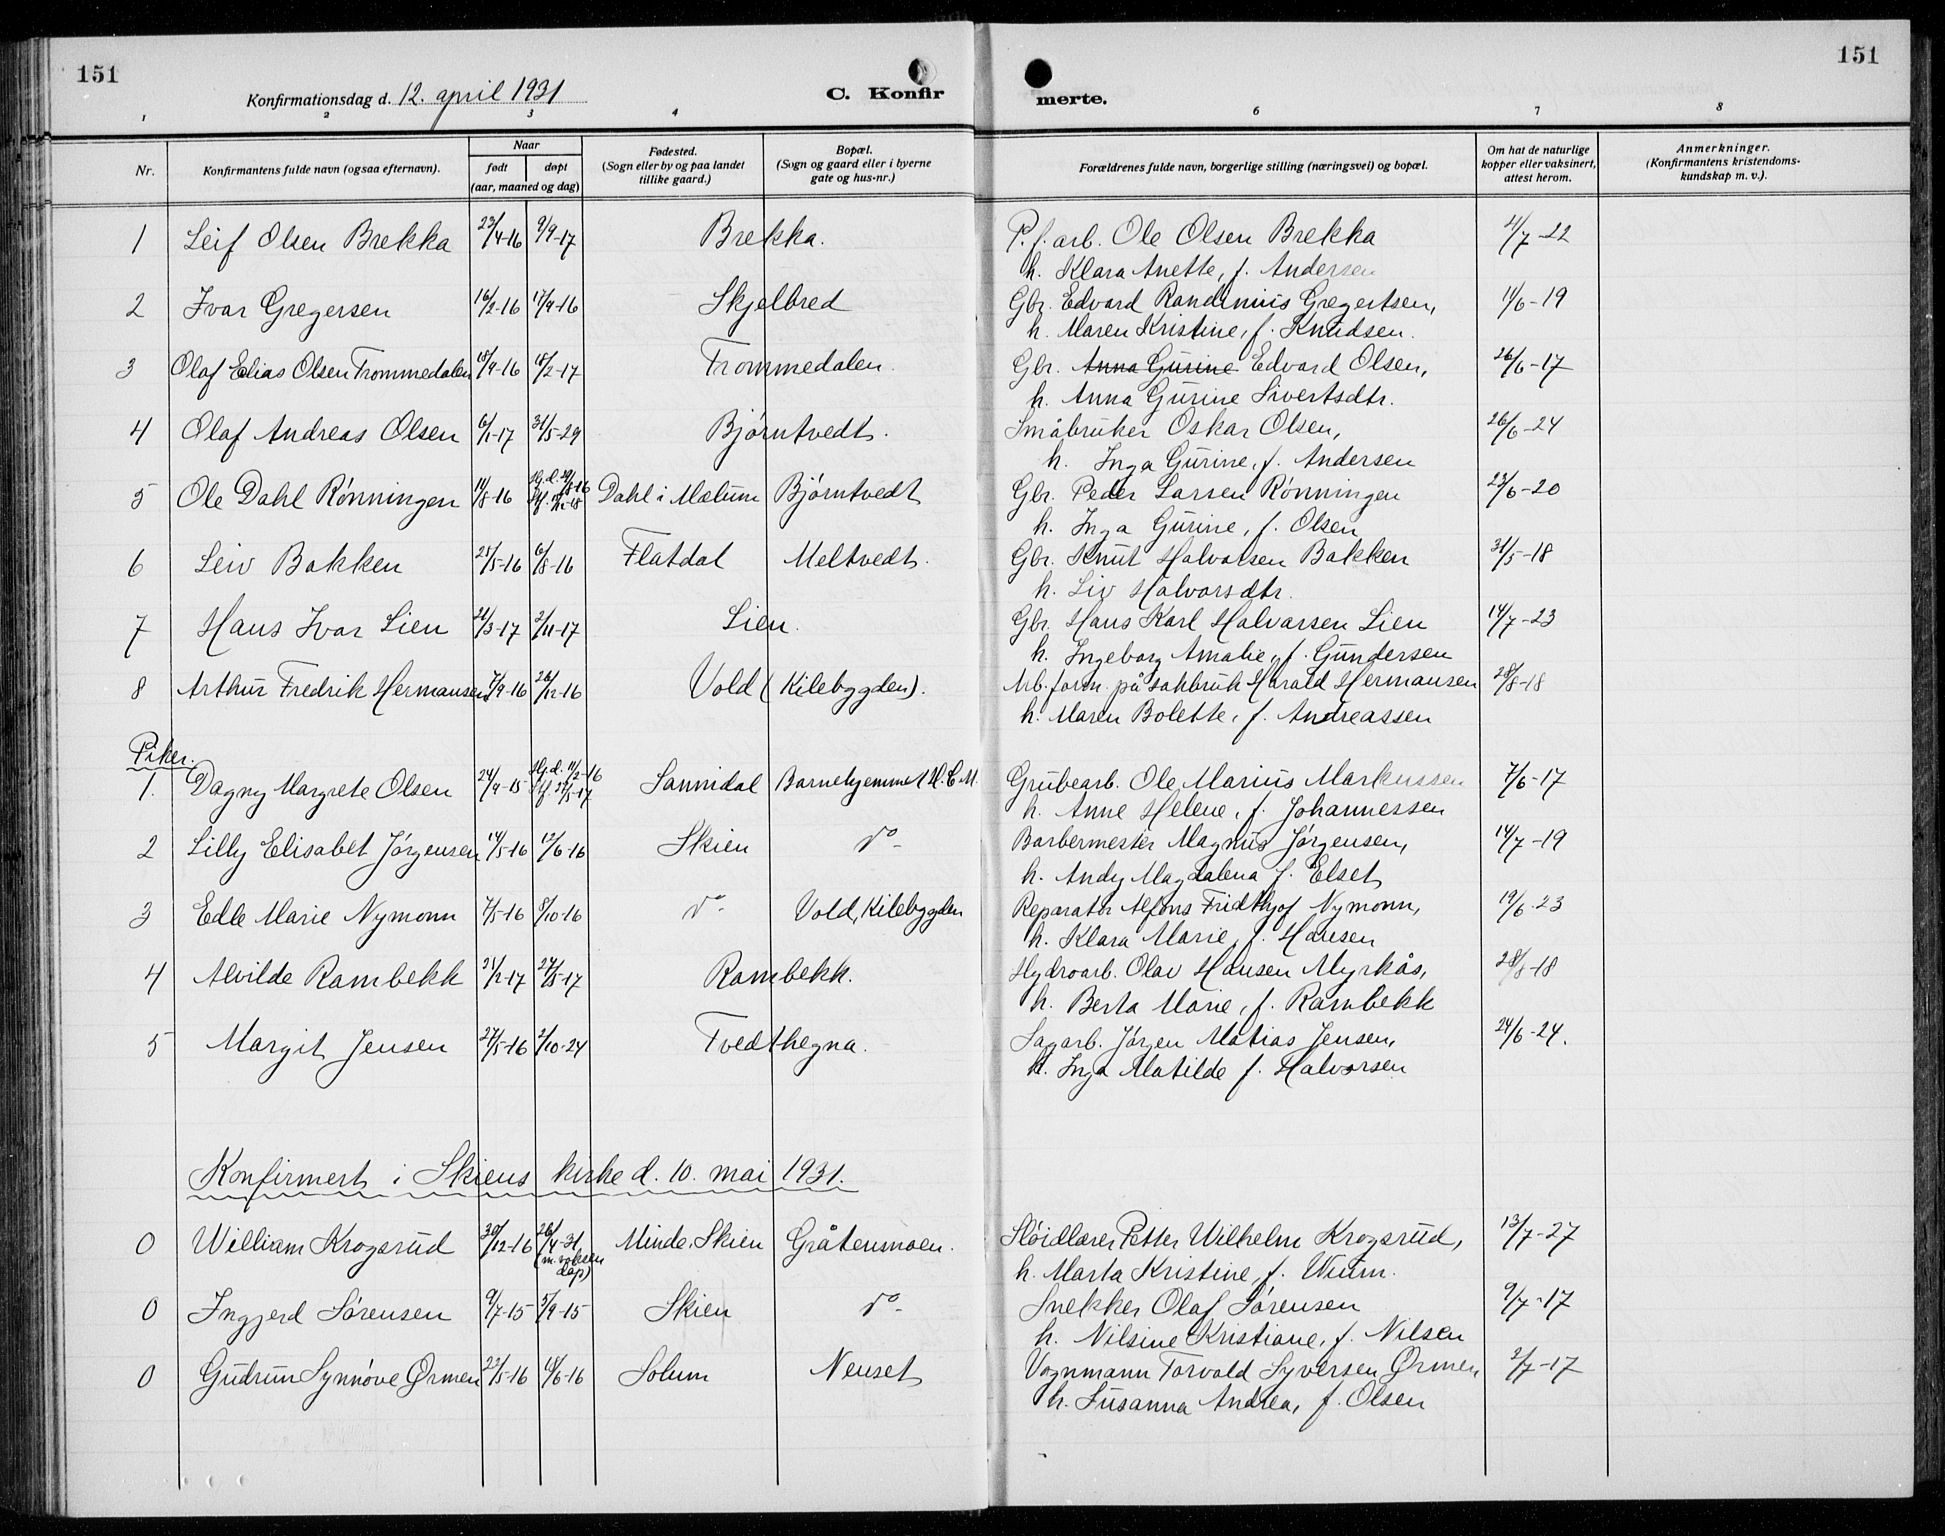 151
151
Konfirmationsdag d. 12. april 1931
C. Konfir
merte.
1 2 3 4 6 7 8
Nr.
Konfirmantens fulde navn (ogsaa efternavn).
Naar
født døpt
(aar, maaned og dag)
Fødested.
(Sogn eller by og paa landet
tillike gaard.)
Bopæl.
(Sogn og gaard eller i byerne
gate og hus-nr.)
Forældrenes fulde navn, borgerlige stilling (næringsvei) og bopæl.
Om hat de naturlige
kopper eller vaksinert,
attest herom.
Anmerkninger.
(Konfirmantens kristendoms-
kundskap m. v.).
1 Leif Olsen Brekka 23/4-16 9/9-17 Brekka. P.f. arb. Ole Olsen Brekka 4/7-22
h. Klara Anette, f. Andersen
2 Ivar Gregersen 16/2-16 17/9-16 Skjelbred Gbr. Edvard Randinius Gregertsen, 11/6-19
h. Maren Kristine, f. Knudsen.
3 Olaf Elias Olsen Trommedalen 18/9-16 18/2-17 Trommedalen. Gbr. Anna Gurine Edvard Olsen, 26/6-17
h. Anna Gurine Sivertsdtr.
4 Olaf Andreas Olsen 6/1-17 31/5-29 Bjørntvedt. Småbruker Oskar Olsen, 26/6-24
h. Inga Gurine, f. Andersen
5 Ole Dahl Rønningen 14/8-16 Hj.d. 29/8-16 Dahl i Mælum Bjørntvedt Gbr. Peder Larsen Rønningen 23/6-20
h. Inga Gurine, f. Olsen
6 Leiv Bakken 25/5-16 6/8-16 Flatdal Meltvedt. Gbr. Knut Halvorsen Bakken 31/5-18
h. Liv Halvorsdtr.
7 Hans Ivar Lien 21/3-17 2/11-17 Lien. Gbr. Hans Karl Halvarsen Lien 14/7-23
h. Ingeborg Amalie, f. Gundersen
8 Arthur Fredrik Hermansen 7/9-16 26/12-16 Vold (Kilebygden). Arb.form. på sakbruk Harald Hermansen 28/8-18
h. Maren Bolette, f. Andreassen
Piker.
1. Dagny Margrete Olsen 24/9-15 Hj.d. 11/2-16 Sannidal Barnehjemmet M.C.M. Grubearb. Ole Marius Markussen 7/6-17
h. Anne Helene, f. Johannessen
2 Lilly Elisabet Jørgensen 14/5-16 12/6-16 Skien do- Barbermester Magnus Jørgensen, 14/7-19
h. Andy Magdalena f. Elset
3 Edle Marie Nymonn 7/5-16 8/10-16 do- Vold, Kilebygden Reparatør Alfons Fridthjof Nymonn, 19/6-23
h. Klara Marie, f. Hansen
4 Alvilde Rambekk 21/2-17 27/5-17 Rambekk. Hydroarb. Olav Hansen Myrkås, 28/8-18
h. Berta Marie, f. Rambekk
5 Margit Jensen 27/5-16 2/10-24 Tvedthegna. Sagarb. Jørgen Matias Jensen, 24/6-24.
h. Inga Matilde f. Halvorsen
Konfirmert i Skiens kirke d. 10. mai 1931.
0 William Krogsrud 30/12-16 26/4-31 Minde, Skien Gråtenmoen. Sløidlærer Petter Wilhelm Krogsrud, 13/7-27
(m. voksen
dåp)
h. Marta Kristine, f. Wium.
0 Ingjerd Sørensen 9/7-15 5/9-15 Skien do- Snekker Olaf Sørensen 9/7-17
h. Nilsine Kristiane, f. Nilsen
0 Gudrun Synnøve Ørmen 22/5-16 18/6-16 Solum Nenset Vognmann Torvald Syversen Ørmen, 2/7-17
h. Susanna Andrea, f. Olsen